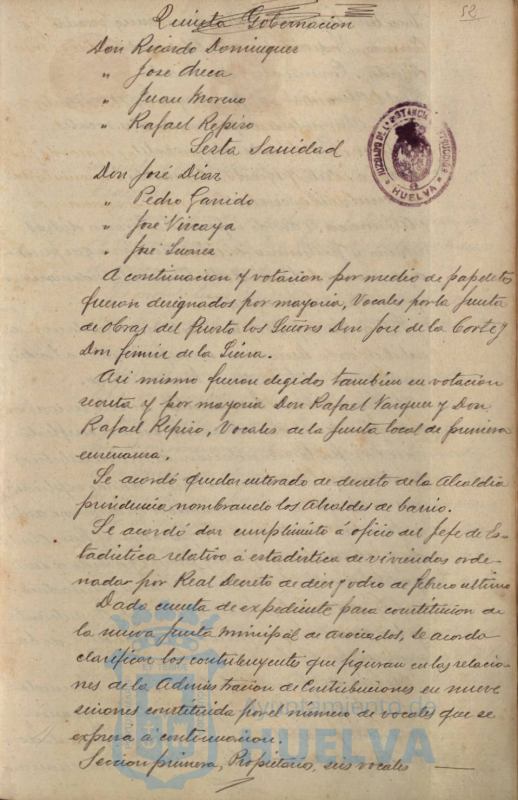 52
Quinta Gobernacion
Don Ricardo Dominguez
" José Checa
" Juan Moreno
" Rafael Repiso
Sexta Sanidad
Don José Diaz
" Pedro Garrido
" José Vizcaya
" José Suarez
JUZGADO DE 1ª INSTANCIA
HUELVA
A continuacion y votacion por medio de papeletas
fueron designados por mayoria, Vocales por la Junta
de Obras del Puerto los Señores Don José de la Corte y
Don Fermin de la Sierra.
Asi mismo fueron elegidos tambien en votacion
secreta y por mayoria Don Rafael Vazquez y Don
Rafael Repiso, Vocales de la Junta local de primera
enseñanza.
Se acordó quedar enterado de decreto de la Alcaldia
presidencia nombrando los Alcaldes de barrio.
Se acordó dar cumplimiento á oficio del Jefe de Es-
tadistica relativo á estadistica de viviendas orde-
nadas por Real Decreto de diez y ocho de febrero ultimo
Dada cuenta de expediente para constitucion de
la nueva Junta Municipal de asociados, se acordó
clasificar los contribuyentes que figuran en las relacio-
nes de la Administracion de Contribuciones en nueve
secciones constituida por el número de vocales que se
expresa á continuacion:
Seccion primera, Propietarios, seis vocales
Ayuntamiento de
HUELVA